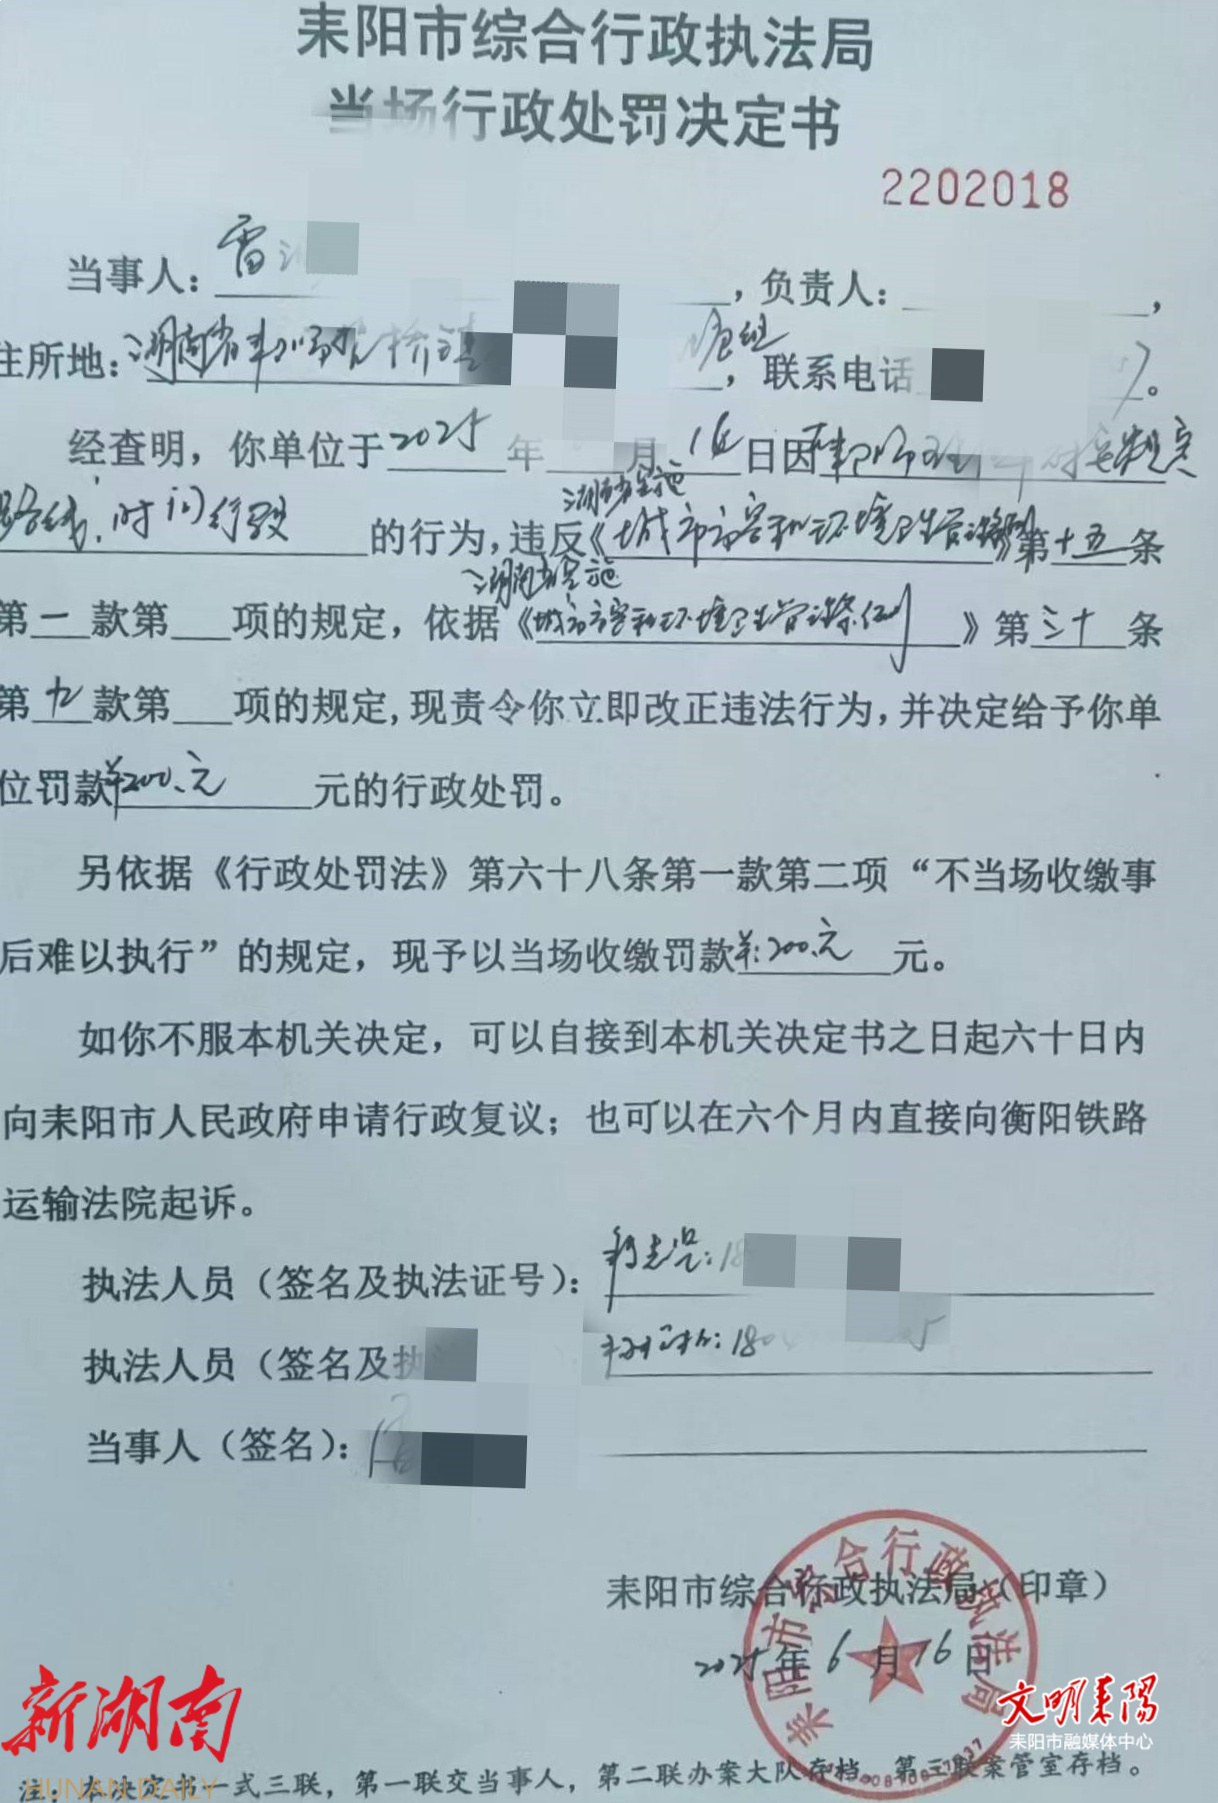 耒阳市综合行政执法局
当场行政处罚决定书
2202018
当事人：雷，负责人：，
住所地：湖南省耒阳市 桥镇 组，联系电话。
经查明，你单位于2025年 月16日因 规定
路线、时间行驶 的行为，违反《湖南省实施城市市容和环境卫生管理条例》第十五条
第一款第 项的规定，依据《湖南省实施城市市容和环境卫生管理条例》第三十条
第九款第 项的规定，现责令你立即改正违法行为，并决定给予你单
位罚款¥200.元 元的行政处罚。
另依据《行政处罚法》第六十八条第一款第二项“不当场收缴事
后难以执行”的规定，现予以当场收缴罚款¥:200.元 元。
如你不服本机关决定，可以自接到本机关决定书之日起六十日内
向耒阳市人民政府申请行政复议；也可以在六个月内直接向衡阳铁路
运输法院起诉。
执法人员（签名及执法证号）：18
执法人员（签名及执 180 5
当事人（签名）：
耒阳市综合行政执法局（印章）
2025年6月16日
耒阳市综合行政执法局
新湖南
HUNAN DAILY
文明耒阳
耒阳市融媒体中心
注：本决定书一式三联，第一联交当事人，第二联办案大队存档。第三联案管室存档。